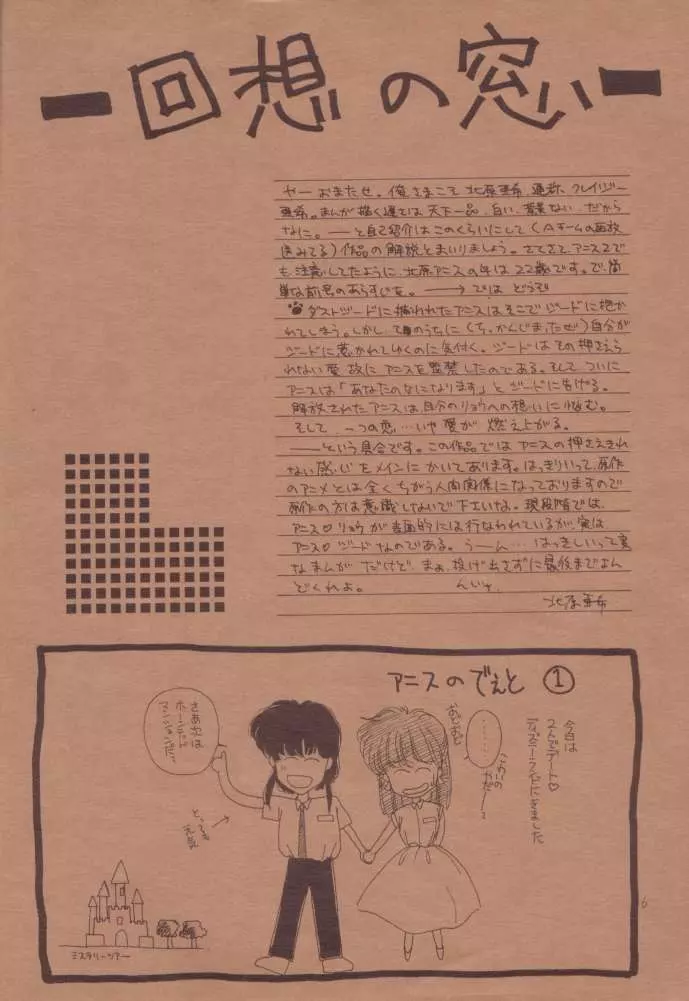 回想の窓
ヤーおまたせ。俺さまこそ北原亜希、通称、クレイジー
亜希。まんが描く速さは天下一品、白い、背景ない、だから
なに。——と自己紹介はこのくらいにして(Aチームの再放
送みてる)作品の解説とまいりましょう。さてさて、アニス2で
も注意してたように、北原アニスの年は22歳です。で、簡
単な前号のあらすじを。——→ではどうぞ
ダストジードに捕われたアニスはそこでジードに抱か
れてしまう。しかし、そのうちに(ち、かんじまったぜ)自分が
ジードに惹かれてゆくのに気付く。ジードはその押さえら
れない愛故にアニスを監禁したのである。そしてついに
アニスは「あなたのなにになります」とジードに告げる。
解放されたアニスは、自分のリョウへの想いに悩む。
そして一つの恋…いや愛が燃え上がる。
——という具合です。この作品ではアニスの押さえきれ
ない感心をメインにかいてあります。はっきりいって、原作
のアニメとは全くちがう人間関係になっておりますので
原作の方は意識しないで下さいな。現段階では、
アニス♡リョウが表面的には行なわれているが、実は
アニス♡ジードなのである。うーん…はっきしいって変
なまんがだけど、まぁ、投げ出さずに最後までよん
どくれよ。
北原亜希
アニスのでぇと ①
今日は
2人でデート♡
ディズニーランドにきました
おどおど
………
さあ次は
ホーンテッド
マンションだ!
とっても
元気
ミステリーツアー
6